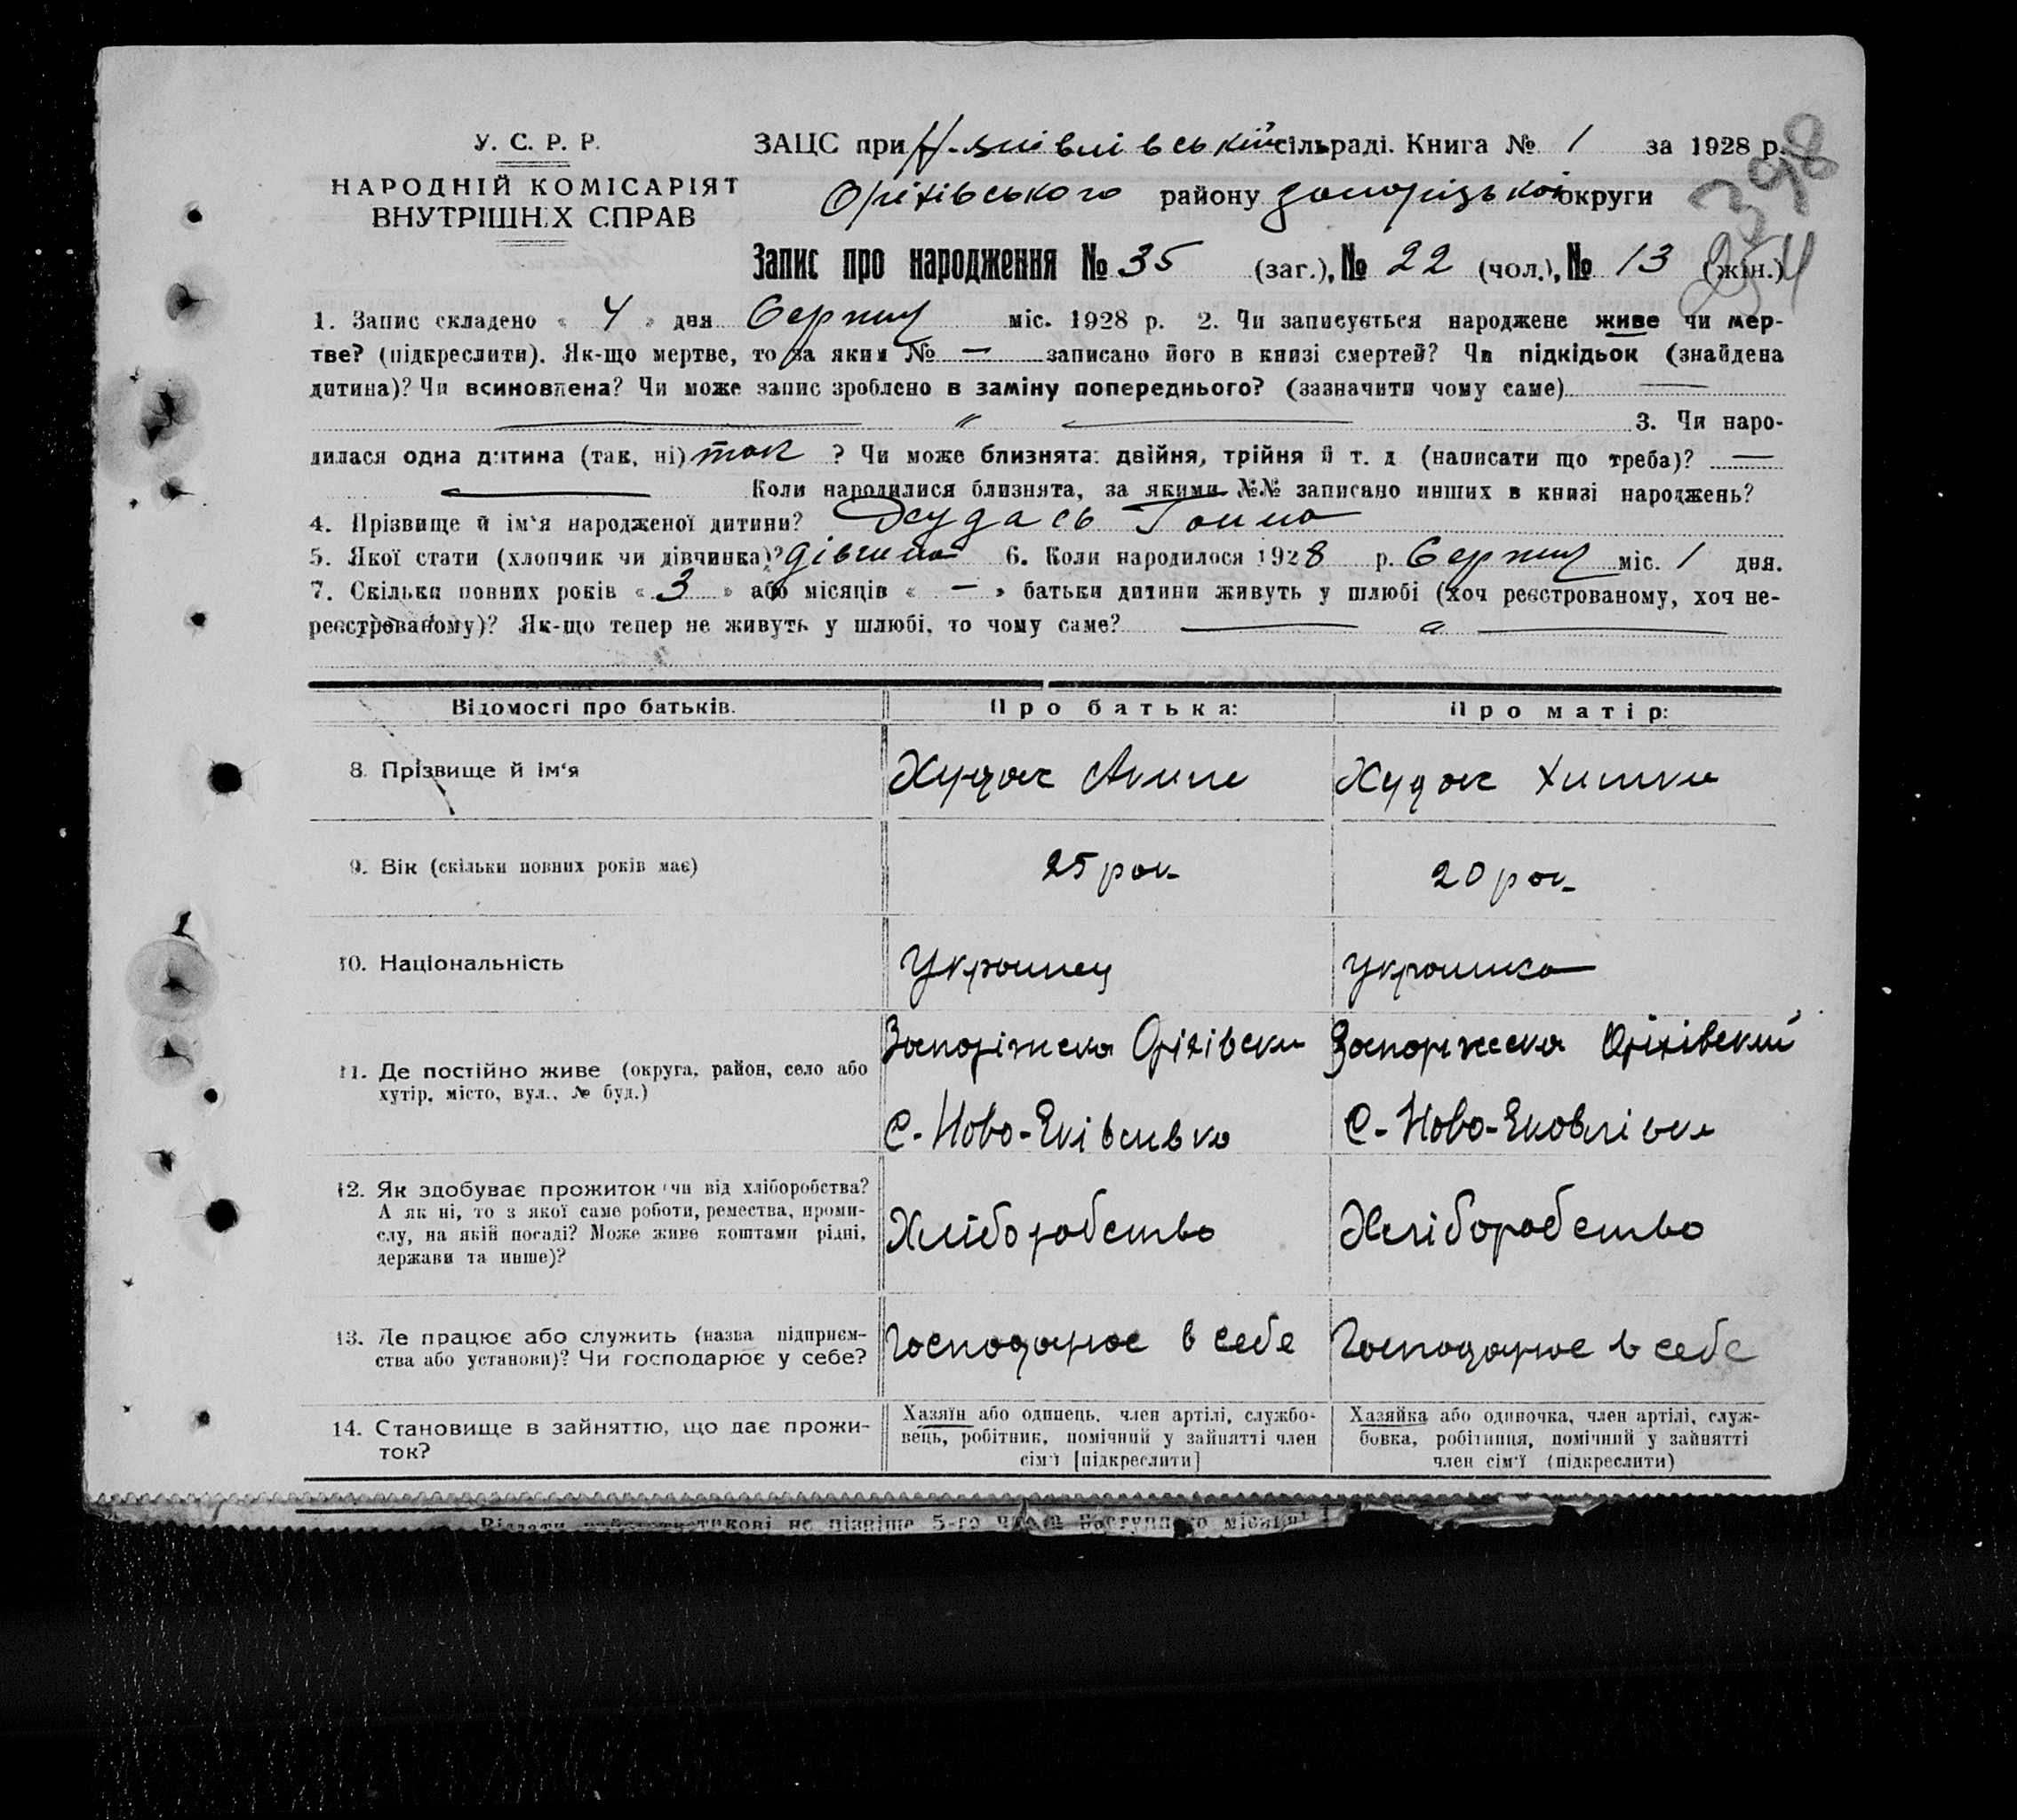 У. С. Р. Р.
НАРОДНІЙ КОМІСАРІЯТ
ВНУТРІШНІХ СПРАВ
ЗАЦС при сільраді. Книга № 1 за 1928 р.
Оріхівського району Запорізької округи
398
254
Запис про народження № 35 (заг.), № 22 (чол.), № 13 (жін.)
1. Запис складено « 4 » дня Серпня міс. 1928 р. 2. Чи записується народжене живе чи мер-
тве? (підкреслити). Як-що мертве, то за яким № — записано його в книзі смертей? Чи підкідьок (знайдена
дитина)? Чи всиновлена? Чи може запис зроблено в заміну попереднього? (зазначити чому саме) —
— „ — 3. Чи наро-
дилася одна дитина (так, ні) так ? Чи може близнята: двійня, трійня й т. д (написати що треба)? —
— Коли народилися близнята, за якими №№ записано инших в книзі народжень?
4. Прізвище й ім'я народженої дитини? Ганна
5. Якої стати (хлопчик чи дівчинка)? дівчина 6. Коли народилося 1928 р. Серпня міс. 1 дня.
7. Скільки повних років « 3 » або місяців « — » батьки дитини живуть у шлюбі (хоч реєстрованому, хоч не-
реєстрованому)? Як-що тепер не живуть у шлюбі, то чому саме? — „ —
Відомості про батьків. Про батька: Про матір:
8. Прізвище й ім'я Худак Аким Худак
9. Вік (скільки повних років має) 25 рок 20 рок
10. Національність Українец Українка
11. Де постійно живе (округа, район, село або
хутір, місто, вул., № буд.)
Запоріжска Оріхівски Запоріжска Оріхівский
с. Ново-Яківливка с. Ново-Яковлівка
12. Як здобуває прожиток чи від хліборобства?
А як ні, то з якої саме роботи, ремества, проми-
слу, на якій посаді? Може живе коштами рідні,
держави та инше)?
Хліборобство Хліборобство
13. Де працює або служить (назва підприєм-
ства або установи)? Чи господарює у себе?
Господарює в себе Господарює в себе
14. Становище в зайняттю, що дає прожи-
ток?
Хазяїн або одинець, член артілі, службо-
вець, робітник, помічний у зайнятті член
сім'ї [підкреслити]
Хазяйка або одиночка, член артілі, служ-
бовка, робітниця, помічний у зайнятті
член сім'ї (підкреслити)
не пізніше 5-го числа наступного місяця!